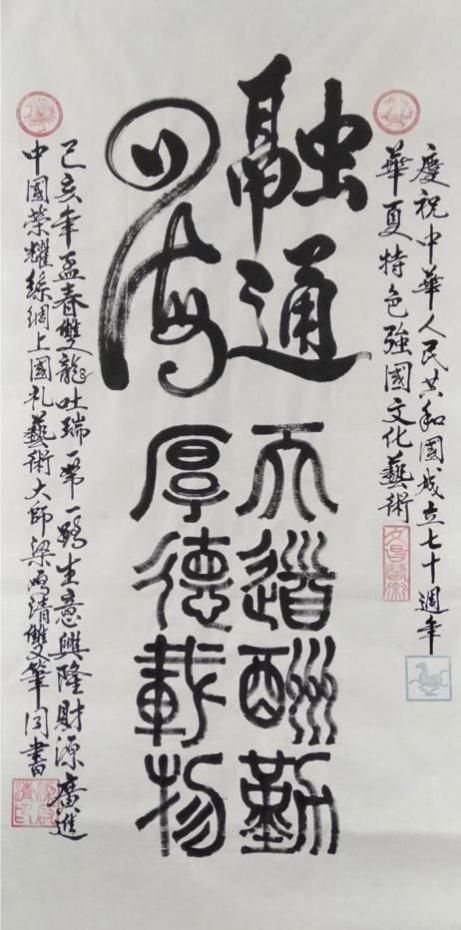 慶祝中華人民共和國成立七十週年
華夏特色強國文化藝術
融通
四海
天道酬勤
厚德載物
己亥年孟春雙龍吐瑞一帶一路生意興隆財源廣進
中國榮耀絲綢上國礼藝術大師梁鸣清雙筆同書